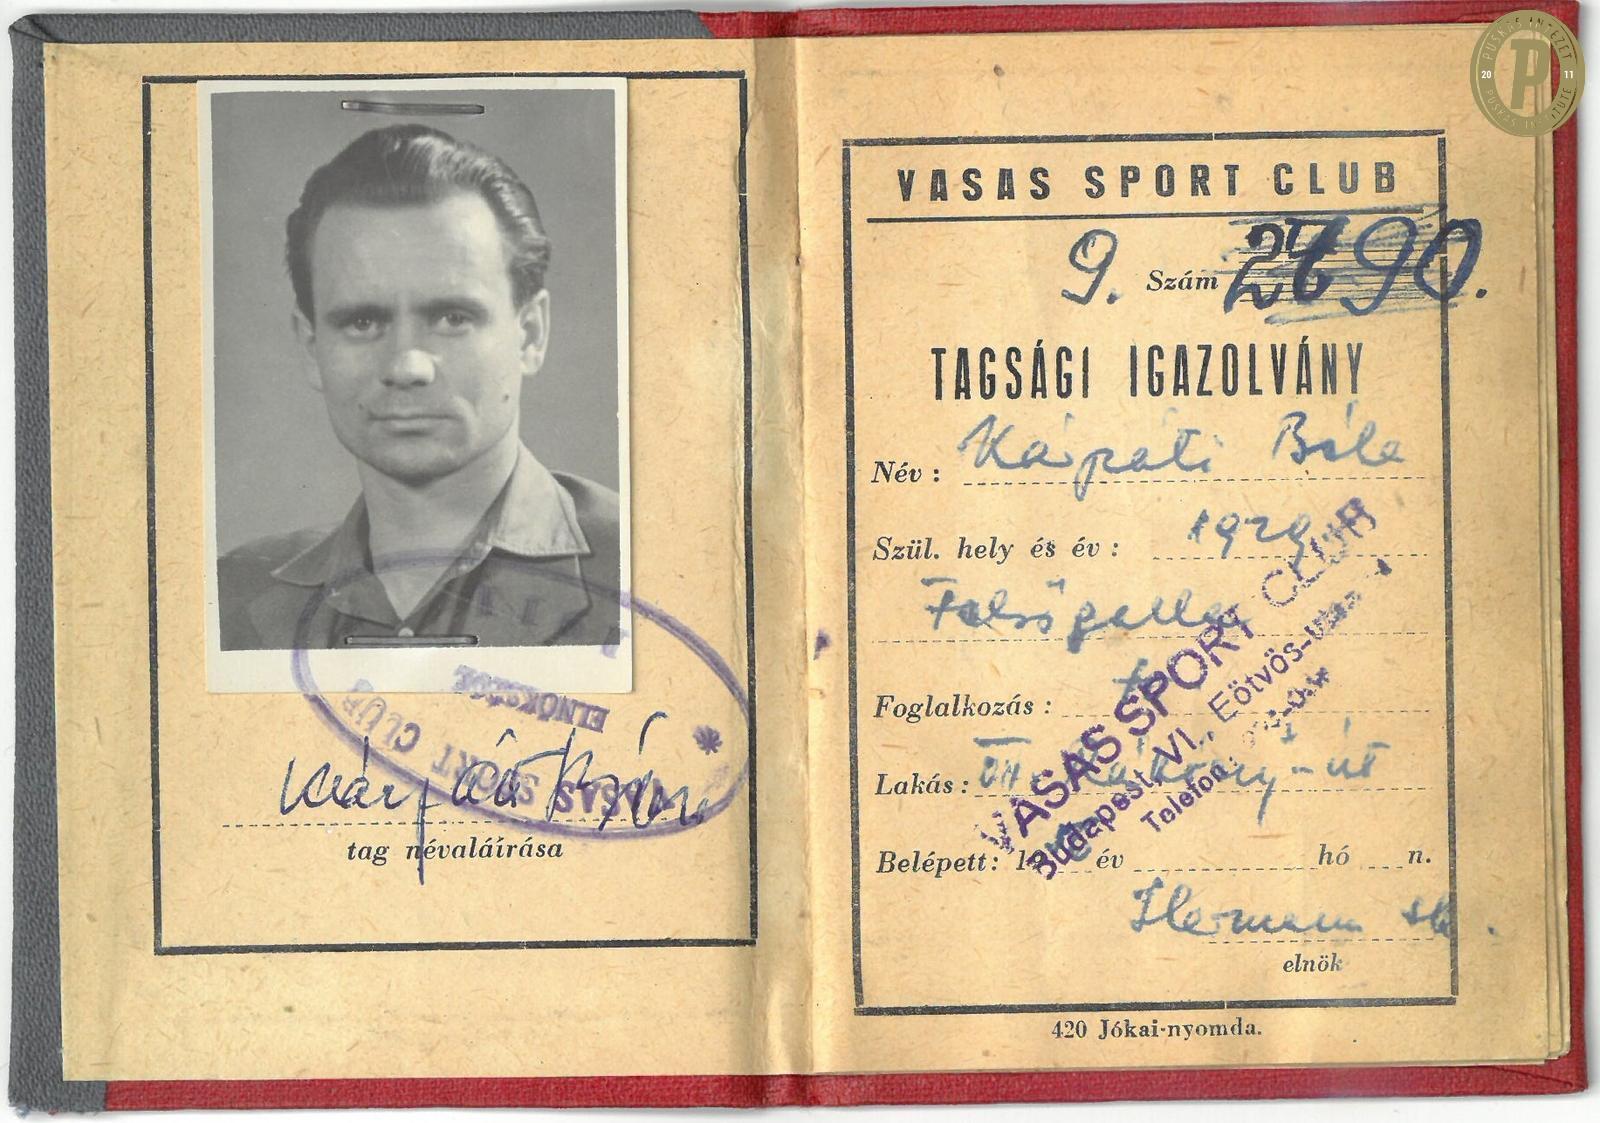 tag névaláírása
VASAS SPORT CLUB
ELNÖKSÉGE
PUSKÁS INTÉZET
20 P 11
PUSKÁS INSTITUTE
VASAS SPORT CLUB
9. Szám
TAGSÁGI IGAZOLVÁNY
Név: Kárpáti Béla
Szül. hely és év: 1929
Felsőgalla
Foglalkozás:
Lakás: út
Belépett: év hó n.
elnök
VASAS SPORT CLUB
Budapest, VI., Eötvös-utca
Telefon:
420 Jókai-nyomda.